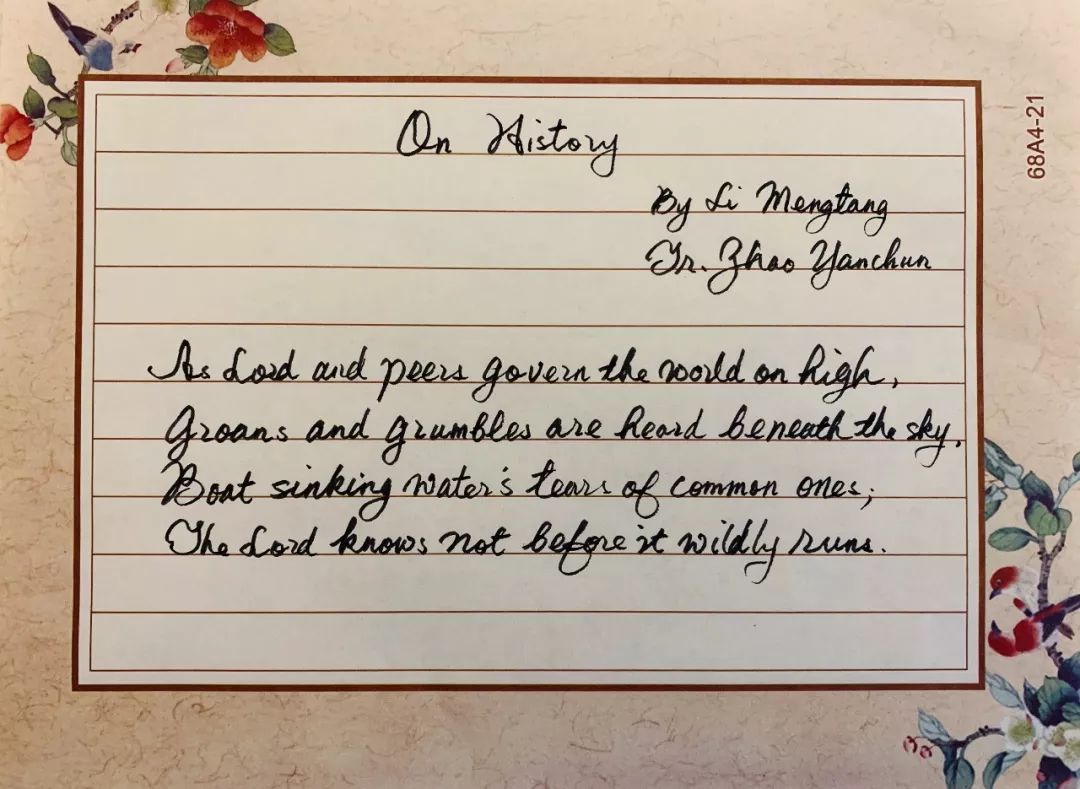 On History
By Li Mengtang
Tr. Zhao Yanchun
As Lord and peers govern the world on high,
Groans and grumbles are heard beneath the sky.
Boat sinking water's tears of common ones;
The Lord knows not before it wildly runs.
68A4-21